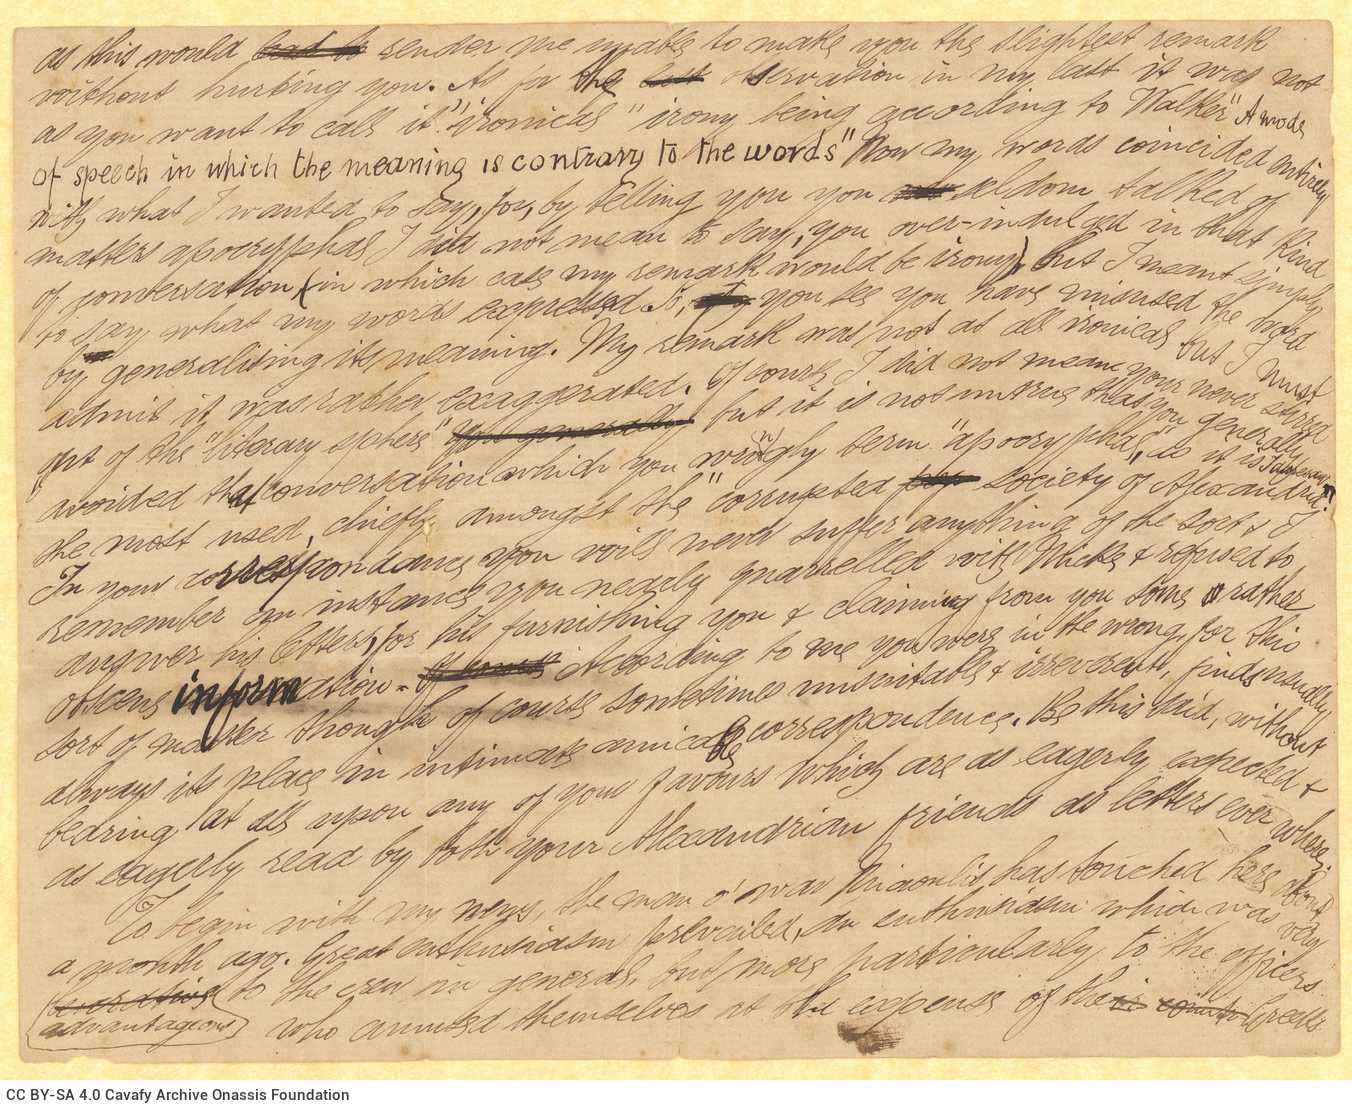 as this would render me unable to make you the slightest remark
without hurting you. As for the observation in my last it was not
as you want to call it "ironical" irony being according to Walker "A mode
of speech in which the meaning is contrary to the words" Now my words coincided entirely
with what I wanted to say, for, by telling you you seldom talked of
matters apocryphal I did not mean to say, you over-indulged in that kind
of conversation (in which case my remark would be irony) but I meant simply
to say what my words expressed so, you see you have misused the word
by generalising its meaning. My remark was not at all ironical but I must
admit it was rather exaggerated. Of course I did not mean you never stirred
out of the "literary sphere" but it is not untrue that you generally
avoided that conversation which you wrongly term "apocryphal", as it is
the most used, chiefly amongst the "corrupted society of Alexandria".
In your correspondence you will never suffer anything of the sort & I
remember an instance you nearly quarrelled with Mike & refused to
answer his letters, for his furnishing you & claiming from you some rather
obscene information. According to me you were in the wrong, for this
sort of matter though of course sometimes unsuitable & irreverent, finds usually,
always its place in intimate amicable correspondence. Be this said, without
bearing at all upon any of your favours which are as eagerly expected &
as eagerly read by both your Alexandrian friends as letters ever where.
To begin with my news, the man o' war Miaoulis has touched here about
a month ago. Great enthusiasm prevailed, an enthusiasm which was very
advantageous to the crew in general, but more particularly to the officers
who amused themselves at the expense of the Greeks
CC BY-SA 4.0 Cavafy Archive Onassis Foundation